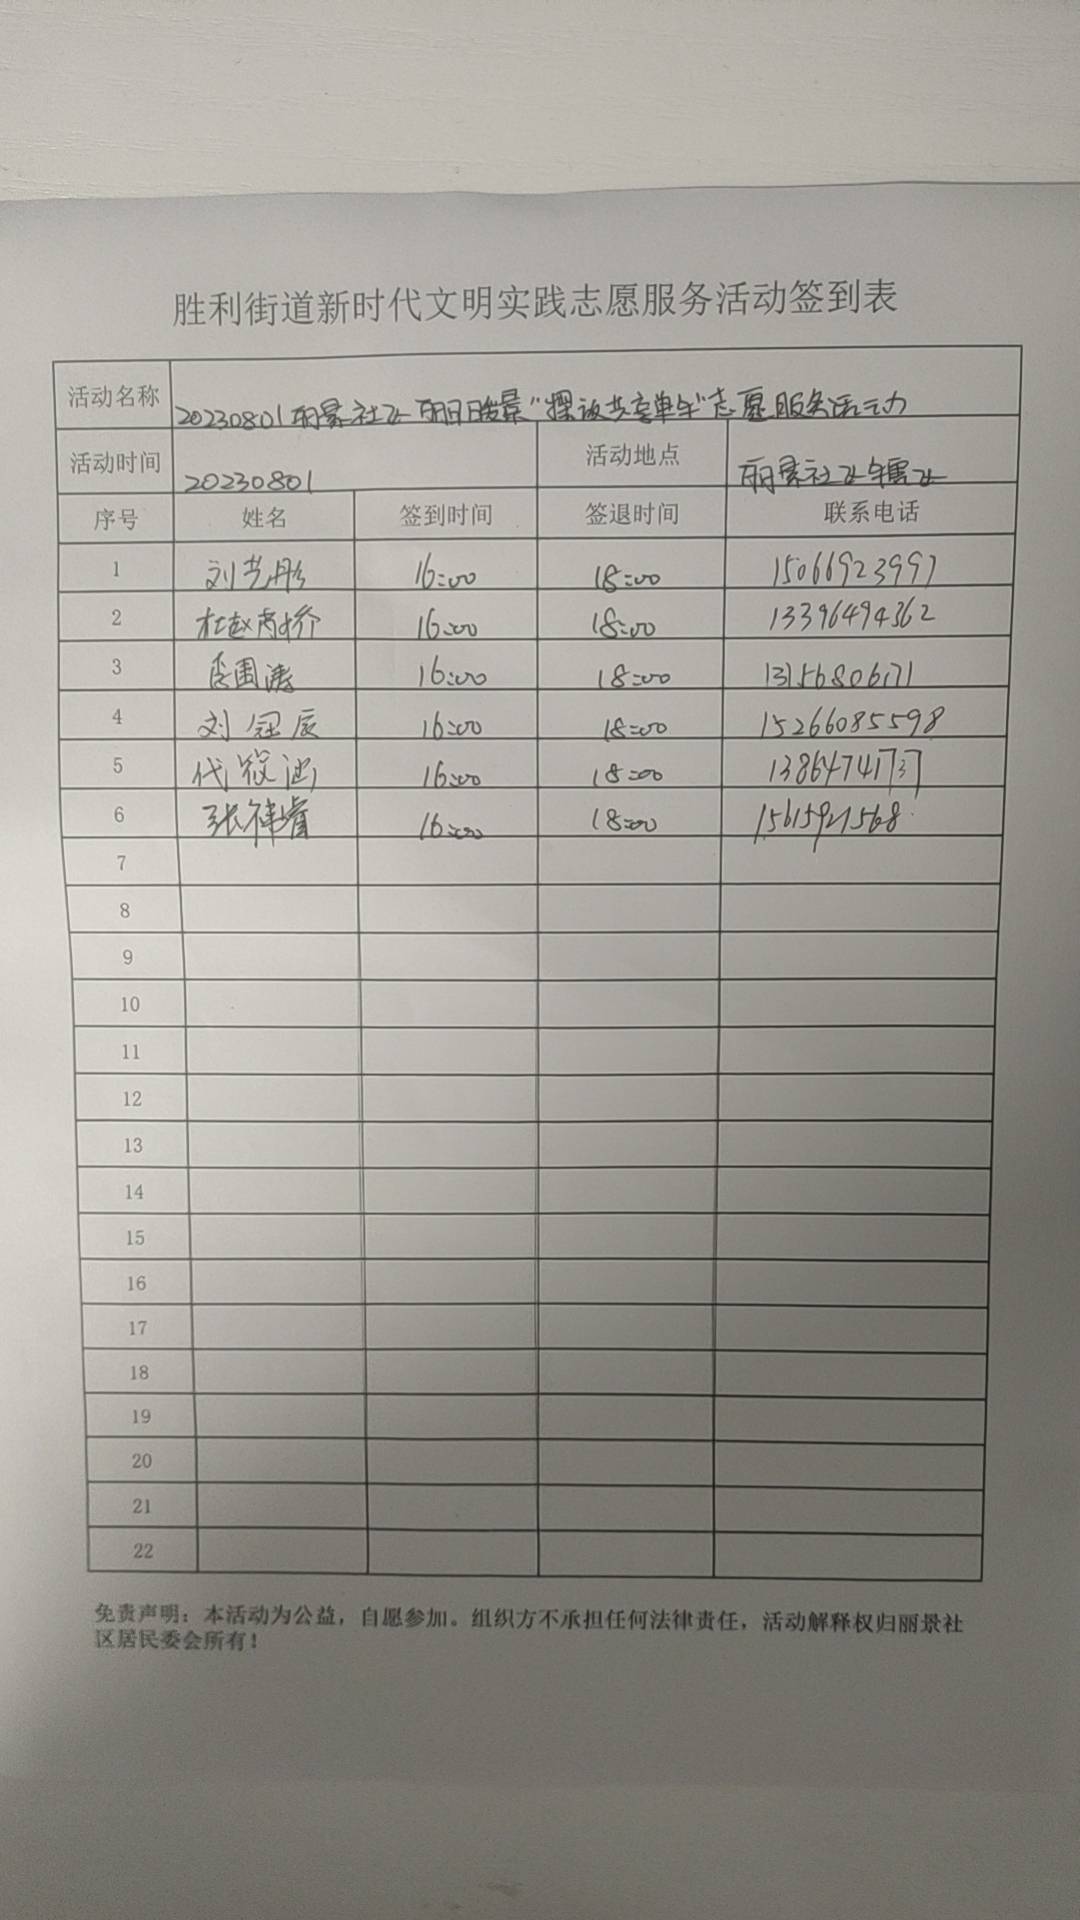 胜利街道新时代文明实践志愿服务活动签到表
活动名称 20230801丽景社区"丽日暖景"探访共享单车"志愿服务活动
活动时间 20230801 活动地点 丽景社区辖区
序号 姓名 签到时间 签退时间 联系电话
1 刘艺彤 16:00 18:00 15066923997
2 杜赵芮 16:00 18:00 13396494362
3 国涛 16:00 18:00
4 刘冠辰 16:00 18:00 15266085598
5 代 涵 16:00 18:00 13864741737
6 张祎睿 16:00 18:00 15615921568
7
8
9
10
11
12
13
14
15
16
17
18
19
20
21
22
免责声明：本活动为公益，自愿参加。组织方不承担任何法律责任，活动解释权归丽景社
区居民委会所有！